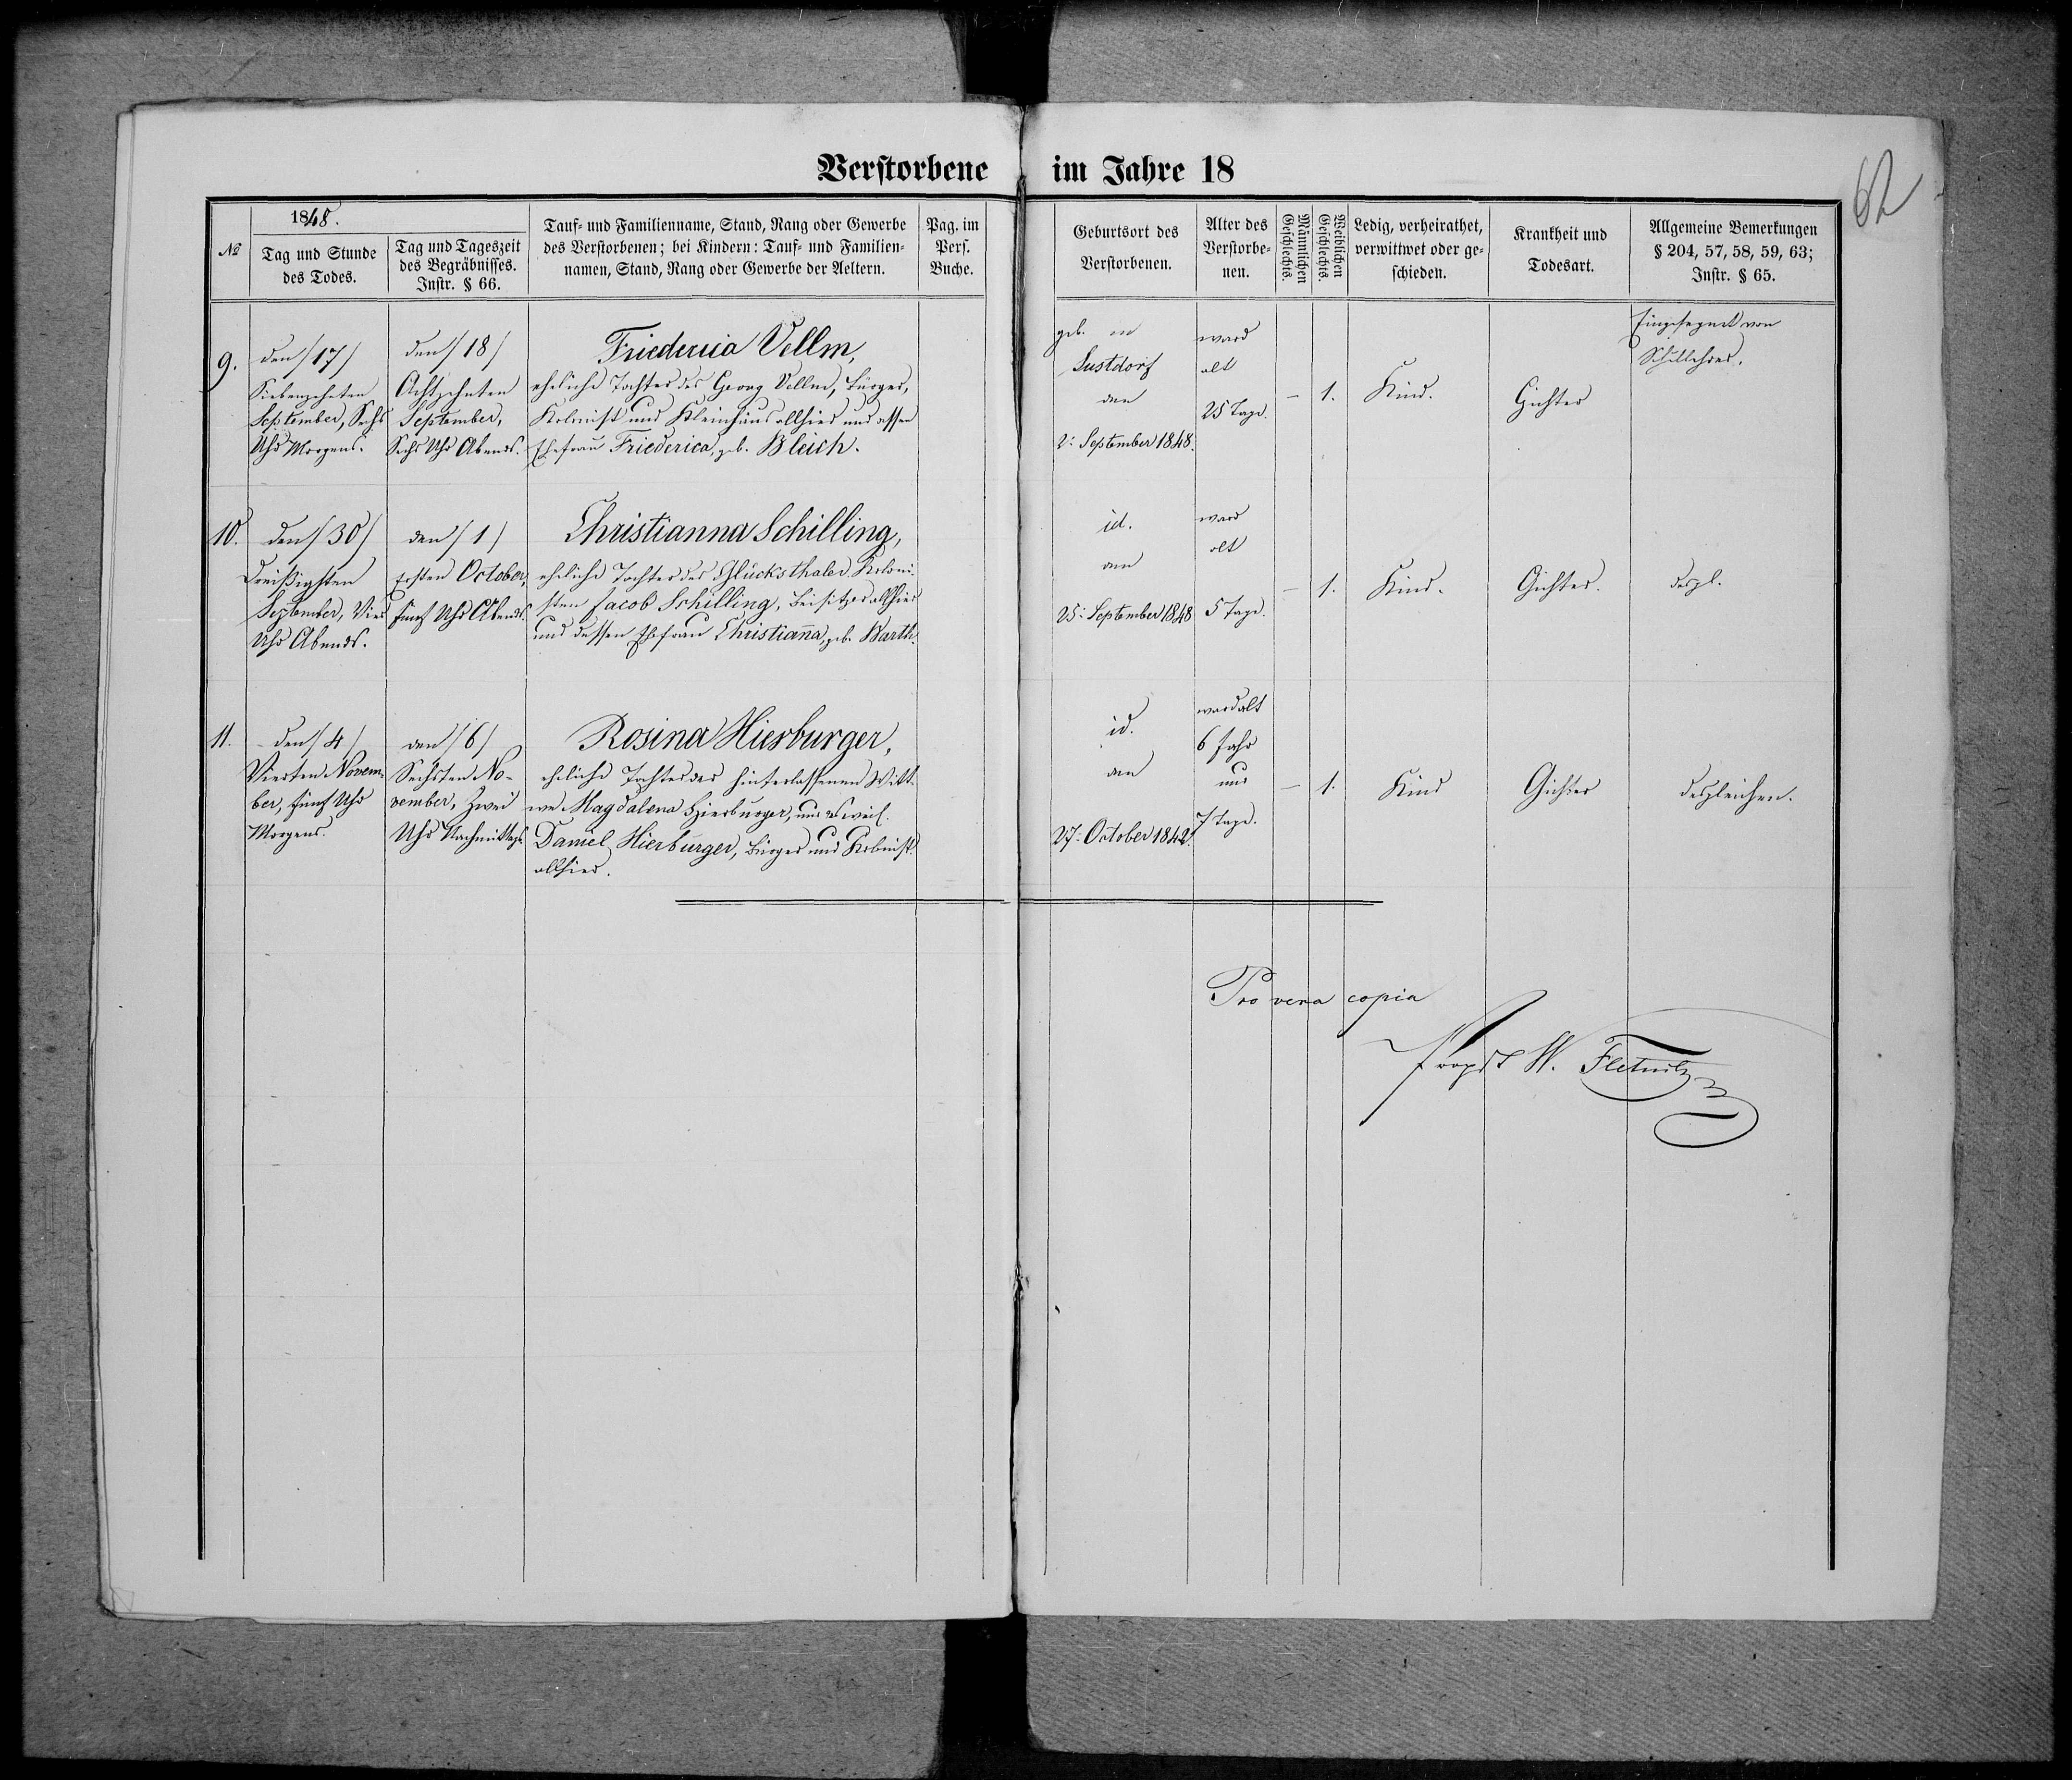 Verstorbene im Jahre 18
62
№
1848.
Tag und Stunde
des Todes.
Tag und Tageszeit
des Begräbnisses.
Instr. § 66.
Tauf- und Familienname, Stand, Rang oder Gewerbe
des Verstorbenen; bei Kindern: Tauf- und Familien-
namen, Stand, Rang oder Gewerbe der Aeltern.
Pag. im
Pers.
Buche.
Geburtsort des
Verstorbenen.
Alter des
Verstorbe-
nen.
Männlichen
Geschlechts.
Weiblichen
Geschlechts.
Ledig, verheirathet,
verwittwet oder ge-
schieden.
Krankheit und
Todesart.
Allgemeine Bemerkungen
§ 204, 57, 58, 59, 63;
Instr. § 65.
9.
den /17/
Siebenzehnten
September, Sechs
Uhr Morgens.
den /18/
Achtzehnten
September,
Sechs Uhr Abends.
Friedericia Vellm,
eheliche Tochter des Georg Vellm, Bürger,
Kolonist und Kleinhäus. allhier und dessen
Ehefrau Friederica, geb. Bleich.
geb. in
Lustdorf
den
2: September 1848.
ward
alt
25 Tage.
–
1.
Kind.
Gichter
Eingesegnet von
Schullehrer.
10.
den /30/
Dreißigsten
September, Vier
Uhr Abends.
den /1/
Ersten October,
fünf Uhr Abends.
Christianna Schilling,
eheliche Tochter des Glücksthaler Koloni-
sten Jacob Schilling, Beisitzer allhier
und dessen Ehefrau Christianna, geb. Barth.
id.
den
25: September 1848
ward
alt
5 Tage.
–
1.
Kind.
Gichter.
desgl.
11.
den /4/
Vierten Novem-
ber, fünf Uhr
Morgens.
den /6/
Sechsten No-
vember, Zwei
Uhr Nachmittags.
Rosina Hierburger,
eheliche Tochter der hinterlassenen Witt-
we Magdalena Hierburger, und des weil.
Daniel Hierburger, Bürger und Kolonist
allhier.
id.
den
27: October 1842.
ward alt
6 Jahr
und
7 Tage.
–
1.
Kind
Gichter
desgleichen.
Pro vera copia
Propst W. Fletnitzer